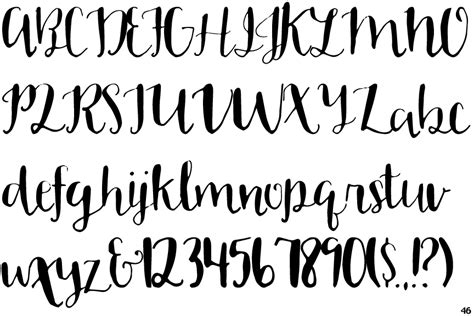 ABCDEFGHIJKLMNO
PQRSTUVWXYZabc
defghijklmnopqrstuv
wxyz&1234567890($.,!?)
46